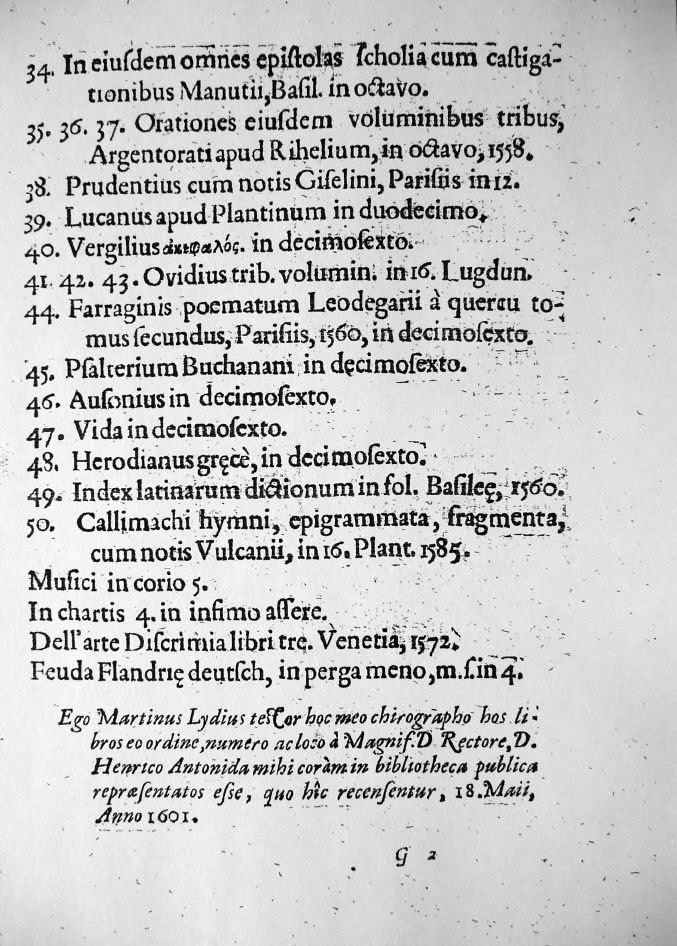 34. In eiuſdem omnes epiſtolas ſcholia cum caſtiga-
tionibus Manutii, Baſil. in octavo.
35. 36. 37. Orationes eiuſdem voluminibus tribus,
Argentorati apud Rihelium, in octavo, 1558.
38. Prudentius cum notis Giſelini, Pariſiis in 12.
39. Lucanus apud Plantinum in duodecimo.
40. Vergilius ἀκεφαλός. in decimoſexto.
41. 42. 43. Ovidius trib. volumin. in 16. Lugdun.
44. Farraginis poematum Leodegarii à quercu to-
mus ſecundus, Pariſiis, 1560, in decimoſexto.
45. Pſalterium Buchanani in dęcimoſexto.
46. Auſonius in decimoſexto.
47. Vida in decimoſexto.
48. Herodianus gręcè, in decimoſexto.
49. Index latinarum dictionum in fol. Baſileę, 1560.
50. Callimachi hymni, epigrammata, fragmenta,
cum notis Vulcanii, in 16. Plant. 1585.
Muſici in corio 5.
In chartis 4. in infimo aſſere.
Dell'arte Diſcrimia libri tre. Venetia, 1572.
Feuda Flandrię deutſch, in perga meno, m.ſ. in 4.
Ego Martinus Lydius teſtor hoc meo chirographo hos li-
bros eo ordine, numero ac loco à Magnif. D Rectore, D.
Henrico Antonida mihi coràm in bibliotheca publica
repræſentatos eſſe, quo hîc recenſentur, 18. Maii,
Anno 1601.
G 2